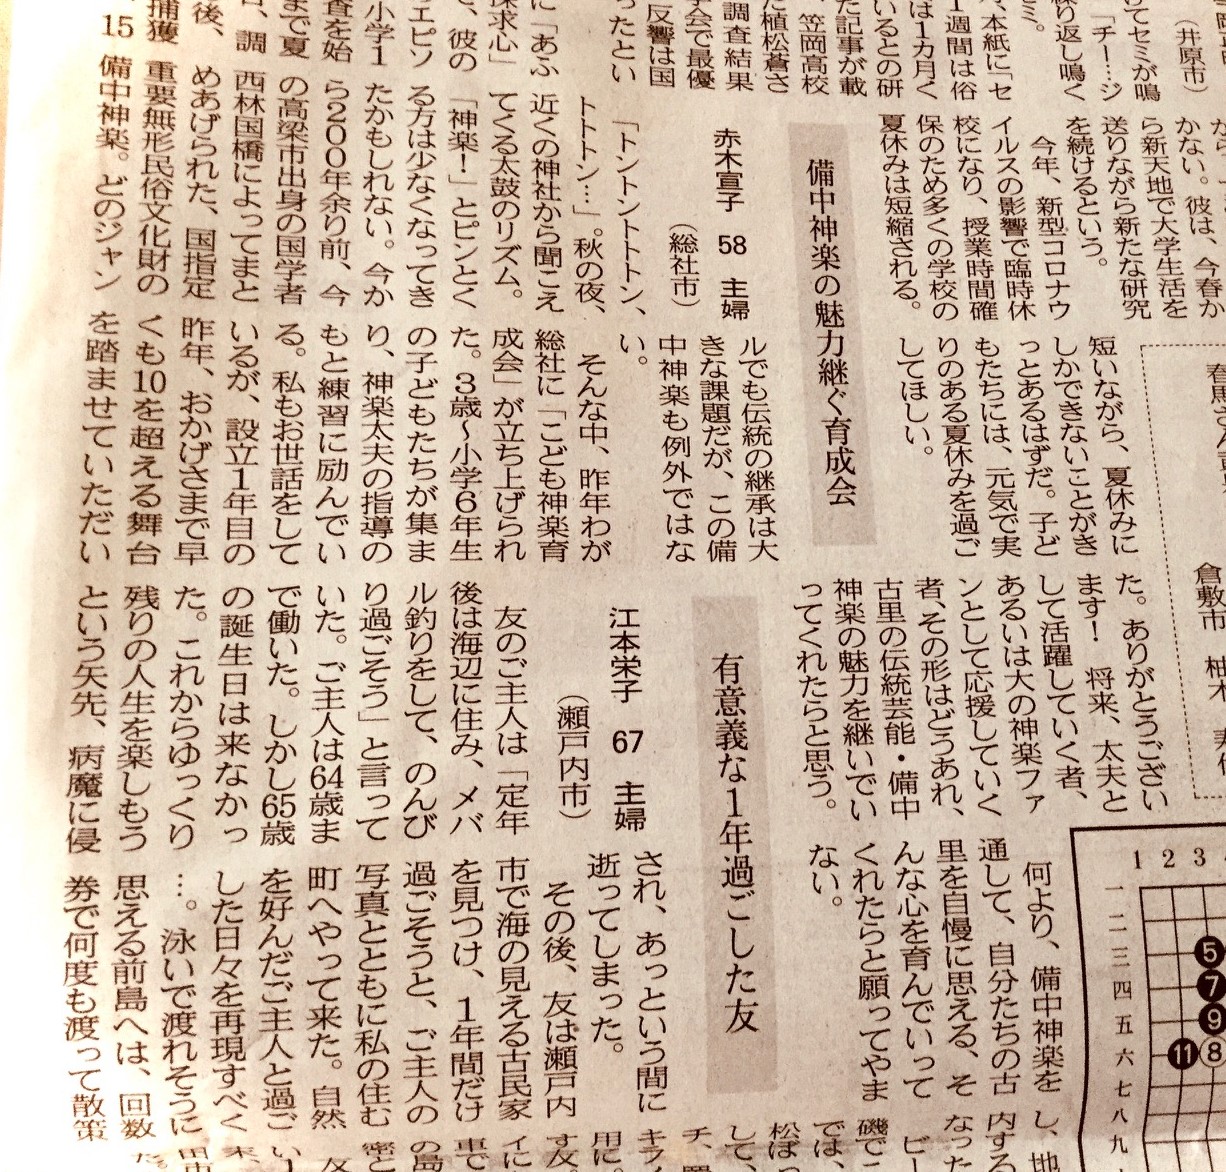 (井原市)
けてセミが鳴
「チー…ジ
繰り返し鳴く
々本紙に「セ
1週間は俗
は1カ月く
いるとの研
た記事が載
笠岡高校
た植松蒼さ
学会で最優
調査結果
反響は国
ったとい
に「あふ
探求心」
で、彼の
エピソ
小学1
査を始
まで夏
日、調
後、
捕獲
15
かない。彼は、今春か
ら新天地で大学生活を
送りながら新たな研究
を続けるという。
今年、新型コロナウ
イルスの影響で臨時休
校になり、授業時間確
保のため多くの学校の
夏休みは短縮される。
短いながら、夏休みに
しかできないことがき
っとあるはずだ。子ど
もたちには、元気で実
りのある夏休みを過ご
してほしい。
備中神楽の魅力継ぐ育成会
赤木宣子 58 主婦
(総社市)
「トントントトトン、
トトトン…」。秋の夜、
近くの神社から聞こえ
てくる太鼓のリズム。
「神楽!」とピンとく
る方は少なくなってき
たかもしれない。今か
ら200年余り前、今
の高梁市出身の国学者
西林国橋によってまと
めあげられた、国指定
重要無形民俗文化財の
備中神楽。どのジャン
ルでも伝統の継承は大
きな課題だが、この備
中神楽も例外ではな
い。
そんな中、昨年わが
総社に「こども神楽育
成会」が立ち上げられ
た。3歳~小学6年生
の子どもたちが集ま
り、神楽太夫の指導の
もと練習に励んでい
る。私もお世話をして
いるが、設立1年目の
昨年、おかげさまで早
くも10を超える舞台
を踏ませていただい
た。ありがとうござい
ます! 将来、太夫と
して活躍していく者、
あるいは大の神楽ファ
ンとして応援していく
者、その形はどうあれ、
古里の伝統芸能・備中
神楽の魅力を継いでい
ってくれたらと思う。
何より、備中神楽を
通して、自分たちの古
里を自慢に思える、そ
んな心を育んでいって
くれたらと願ってやま
ない。
有意義な1年過ごした友
江本栄子 67 主婦
(瀬戸内市)
友のご主人は「定年
後は海辺に住み、メバ
ル釣りをして、のんび
り過ごそう」と言って
いた。ご主人は64歳ま
で働いた。しかし65歳
の誕生日は来なかっ
た。これからゆっくり
残りの人生を楽しもう
という矢先、病魔に侵
され、あっという間に
逝ってしまった。
その後、友は瀬戸内
市で海の見える古民家
を見つけ、1年間だけ
過ごそうと、ご主人の
写真とともに私の住む
町へやって来た。自然
を好んだご主人と過ご
した日々を再現すべく
…。泳いで渡れそうに
思える前島へは、回数
券で何度も渡って散策
し、地
内する
なった
ビー
磯でこ
では、
して、
チ、
キライ
用に。
す友。
イに
車で
の島
密と
友
倉敷市
1 2 3
一
二
三
四
五
六
七
八
九
5
7
9
11 8